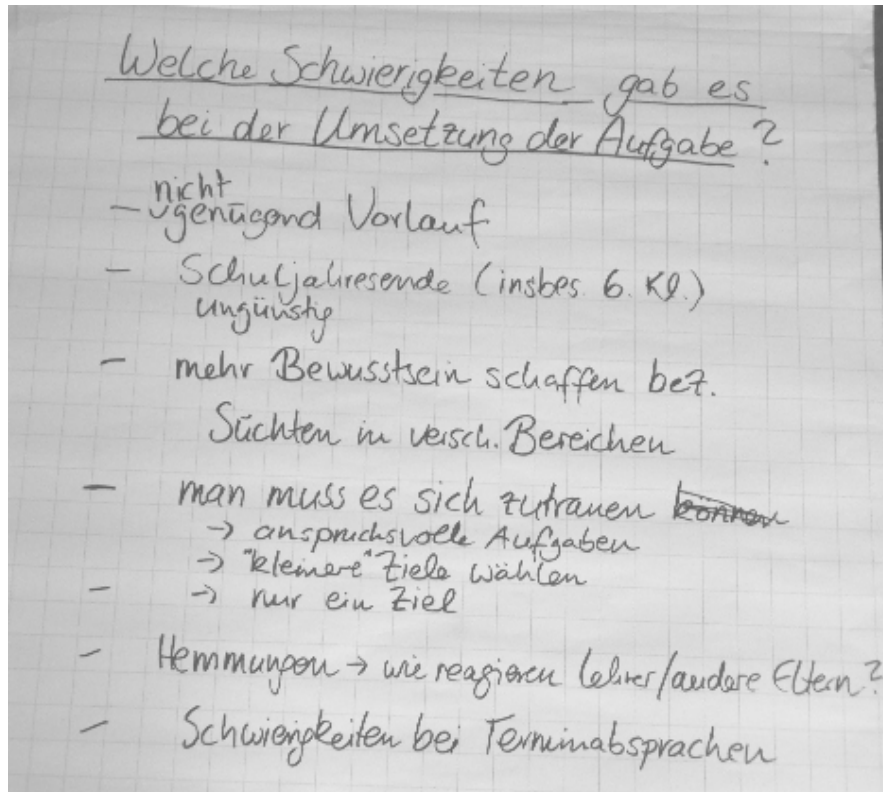 Welche Schwierigkeiten gab es
bei der Umsetzung der Aufgabe?
nicht
- genügend Vorlauf
- Schuljahresende (insbes. 6. Kl.)
ungünstig
- mehr Bewusstsein schaffen bez.
Süchten in versch. Bereichen
- man muss es sich zutrauen können
→ anspruchsvolle Aufgaben
→ "kleinere" Ziele wählen
- → nur ein Ziel
- Hemmungen → wie reagieren Lehrer/andere Eltern?
- Schwierigkeiten bei Terminabsprachen